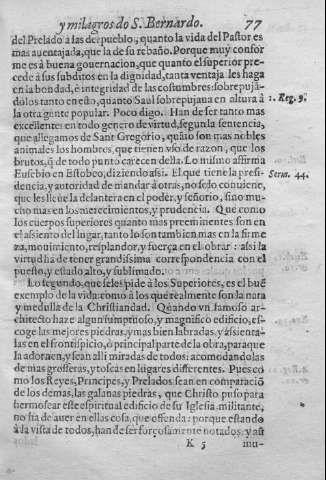 y milagros do S. Bernardo. 77
del Prelado à las del pueblo, quanto la vida del Pastor es
mas auentajada, que la de su rebaño. Porque muy confor
me es à buena gouernacion, que quanto el superior pre-
cede à sus subditos en la dignidad, tanta ventaja les haga
en la bondad, è integridad de las costumbres: sobrepujã-
dolos tanto en esto, quanto Saul sobrepujaua en altura à
la otra gente popular. Poco digo. Han de ser tanto mas
excellentes en todo genero de virtud, segun la sentencia,
que allegamos de Sant Gregorio, quãto son mas nobles
animales los hombres, que tienen vso de razon, que los
brutos, q̃ de todo punto carecen della. Lo mismo affirma
Eusebio en Estobeo, diziendo assi. El que tiene la presi-
dencia, y autoridad de mandar à otros, no solo conuiene,
que les lleue la delantera en el poder, y señorio, sino mu-
cho mas en los merecimientos, y prudencia. Que como
los cuerpos superiores quanto mas preeminentes son en
el assiento del lugar, tanto lo son tambien mas en la firme
za, mouimiento, resplandor, y fuerça en el obrar: assi la
virtud ha de tener grandissima correspondencia con el
puesto, y estado alto, y sublimado.
Lo segundo, que se les pide à los Superiores, es el buẽ
exemplo de la vida: como à los que realmente son la nata
y medulla de la Christiandad. Quando vn famoso ar-
chitecto haze algun sumptuoso, y magnifico edificio, es-
coge las mejores piedras, y mas bien labradas, y assienta-
las en el frontispicio, ò principal parte de la obra, paraque
la adornen, y sean alli miradas de todos: acomodando las
de mas grosseras, y toscas en lugares differentes. Pues co
mo los Reyes, Principes, y Prelados sean en comparaciõ
de los demas, las galanas piedras, que Christo puso para
hermosear este espiritual edificio de su Iglesia militante,
no ha de auer en ellas cosa, que offenda: porque estando
à la vista de todos, han de ser forçosamente notados: y assi
K 5 mu-
1. Reg. 9.
Serm. 44.